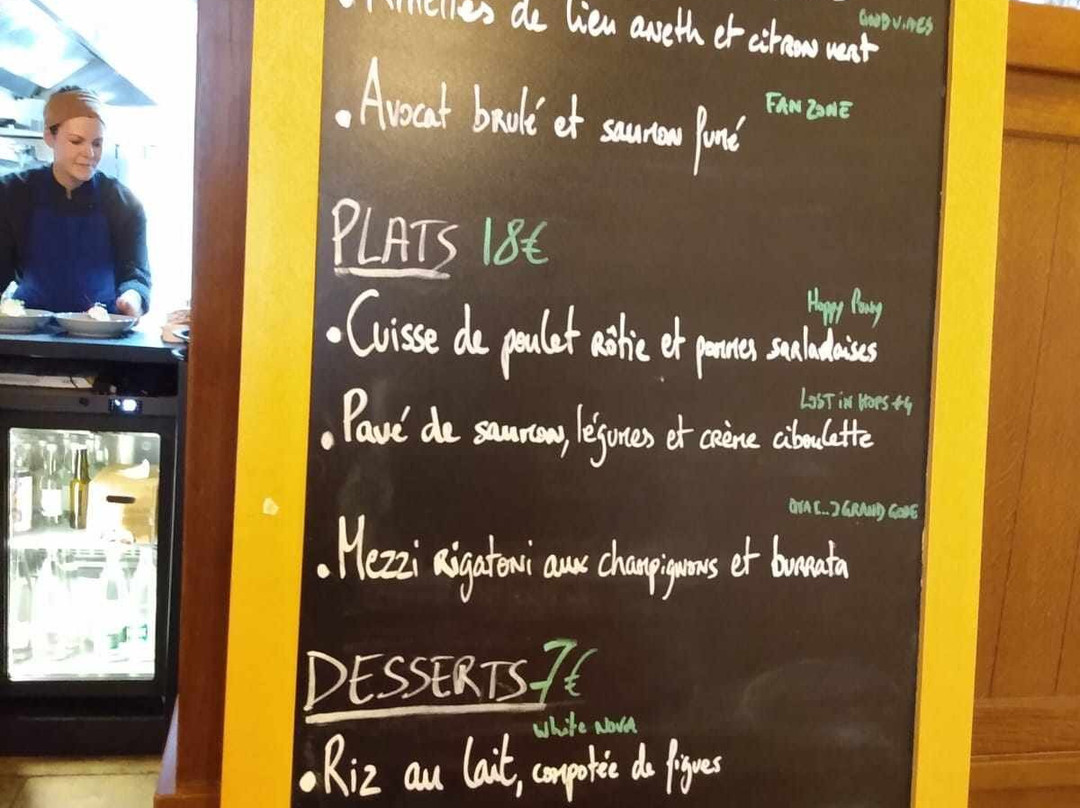 de lieu aneth et citron vert
FAN ZONE
• Avocat brulé et saumon fumé
PLATS 18€
Hoppy Pony
• Cuisse de poulet rôtie et pommes sarladaises
LOST IN HOPS #4
• Pavé de saumon, légumes et crème ciboulette
GRAND CODE
• Mezzi Rigatoni aux champignons et burrata
DESSERTS 7€
White NOVA
• Riz au lait, compotée de figues